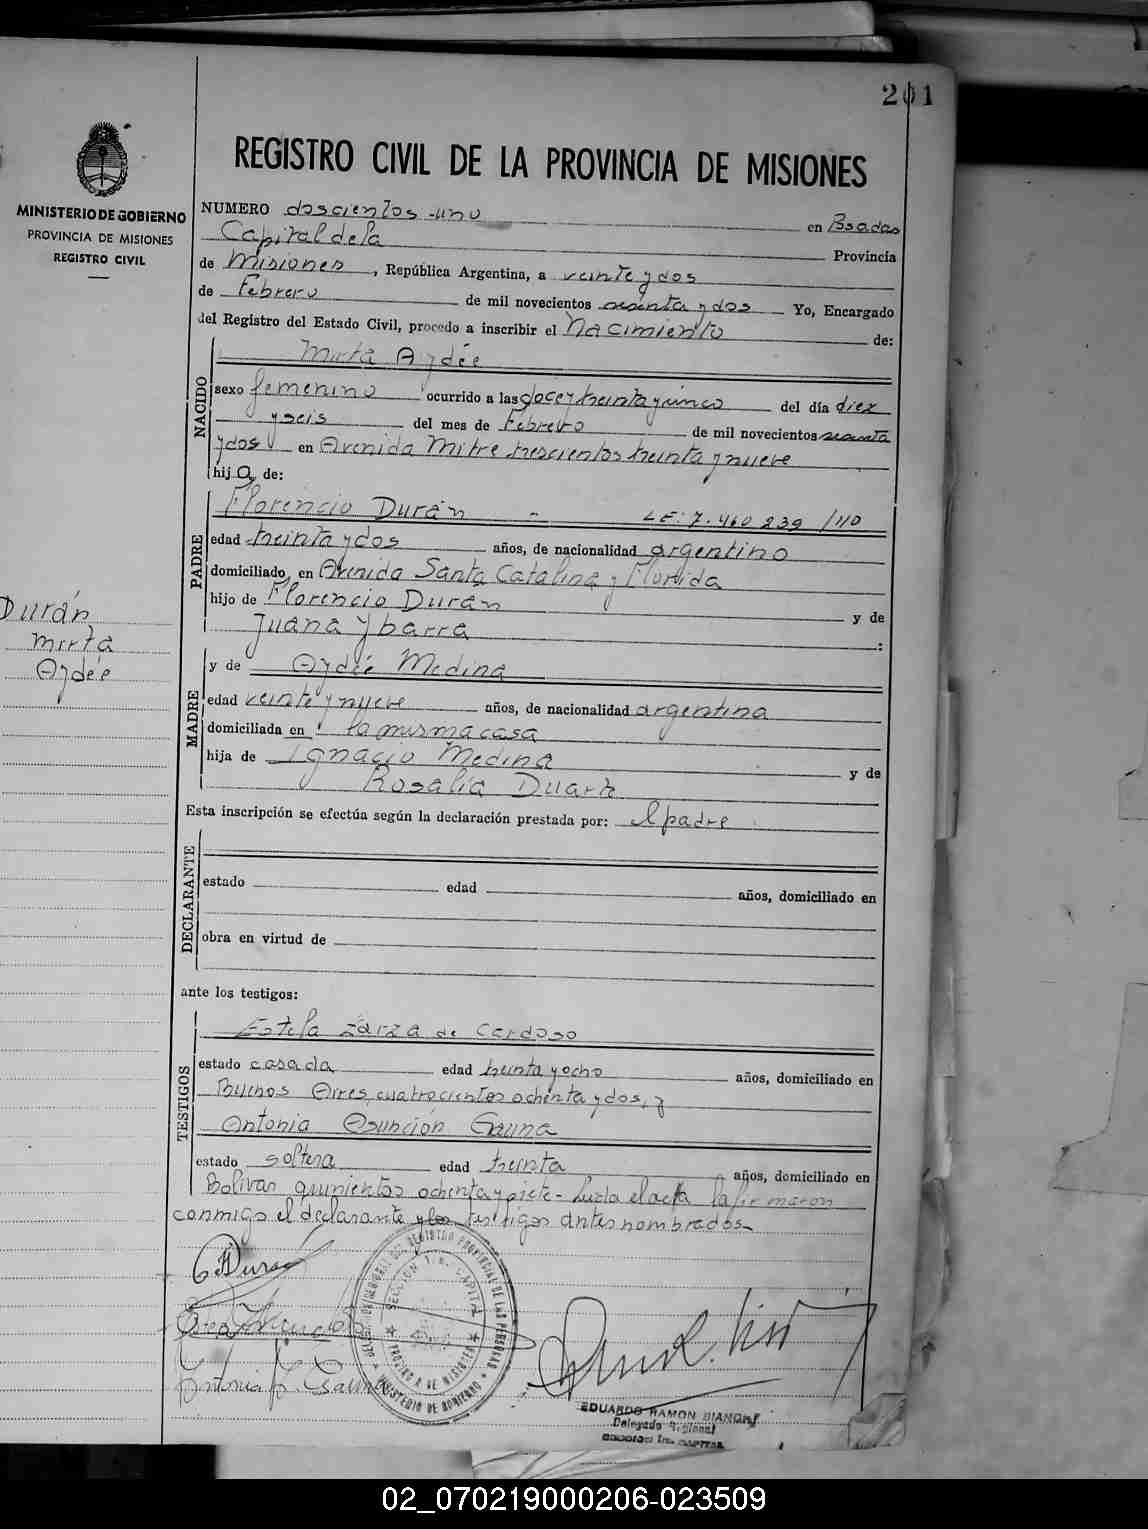 201
REGISTRO CIVIL DE LA PROVINCIA DE MISIONES
MINISTERIO DE GOBIERNO
PROVINCIA DE MISIONES
REGISTRO CIVIL
NUMERO doscientos uno en Posadas
Capital de la Provincia
de Misiones, República Argentina, a veinte y dos
de Febrero de mil novecientos sesenta y dos Yo, Encargado
del Registro del Estado Civil, procedo a inscribir el Nacimiento de:
NACIDO
Mirta Aydée
sexo femenino ocurrido a las doce y treinta y cinco del día diez
y seis del mes de Febrero de mil novecientos sesenta
y dos en Avenida Mitre trescientos treinta y nueve
hija de:
PADRE
Florencio Durán - LE: 7.460.239/40
edad treinta y dos años, de nacionalidad argentino
domiciliado en Avenida Santa Catalina y Florida
hijo de Florencio Durán y de
Juana Ybarra :
Durán
Mirta
Aydée
MADRE
y de Aydée Medina
edad veinte y nueve años, de nacionalidad argentina
domiciliada en la misma casa
hija de Ignacio Medina y de
Rosalía Duarte
Esta inscripción se efectúa según la declaración prestada por: el padre
DECLARANTE
estado edad años, domiciliado en
obra en virtud de
ante los testigos:
TESTIGOS
Estela Zarza de Cardoso
estado casada edad treinta y ocho años, domiciliado en
Buenos Aires cuatrocientos ochenta y dos, y
Antonia Asunción Gauna
estado soltera edad treinta años, domiciliado en
Bolivar quinientos ochenta y siete - Leída el acta la firmaron
conmigo el declarante y los testigos antes nombrados
Durán
Antonia A. Gauna
SECCION 1ra. CAPITAL
PROVINCIA DE MISIONES
MINISTERIO DE GOBIERNO
REGISTRO PROVINCIAL DE LAS PERSONAS
EDUARDO RAMON BIANCHI
Delegado Regional
SECCION 1ra. CAPITAL
02_070219000206-023509